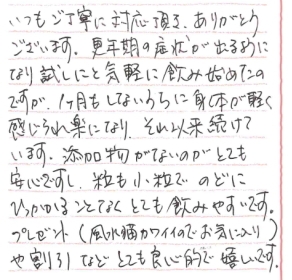 いつもご丁寧に対応頂き、ありがとう
ございます。更年期の症状が出るように
なり試しにと気軽に飲み始めたの
ですが、1ヶ月もしないうちに身体が軽く
感じられ楽になり、それ以来続けて
います。添加物がないのがとても
安心ですし、粒も小粒で のどに
ひっかかることなくとても飲みやすいです。
プレゼント(風水猫カワイイのでお気に入り)
や割引などとても良心的で嬉しいです。